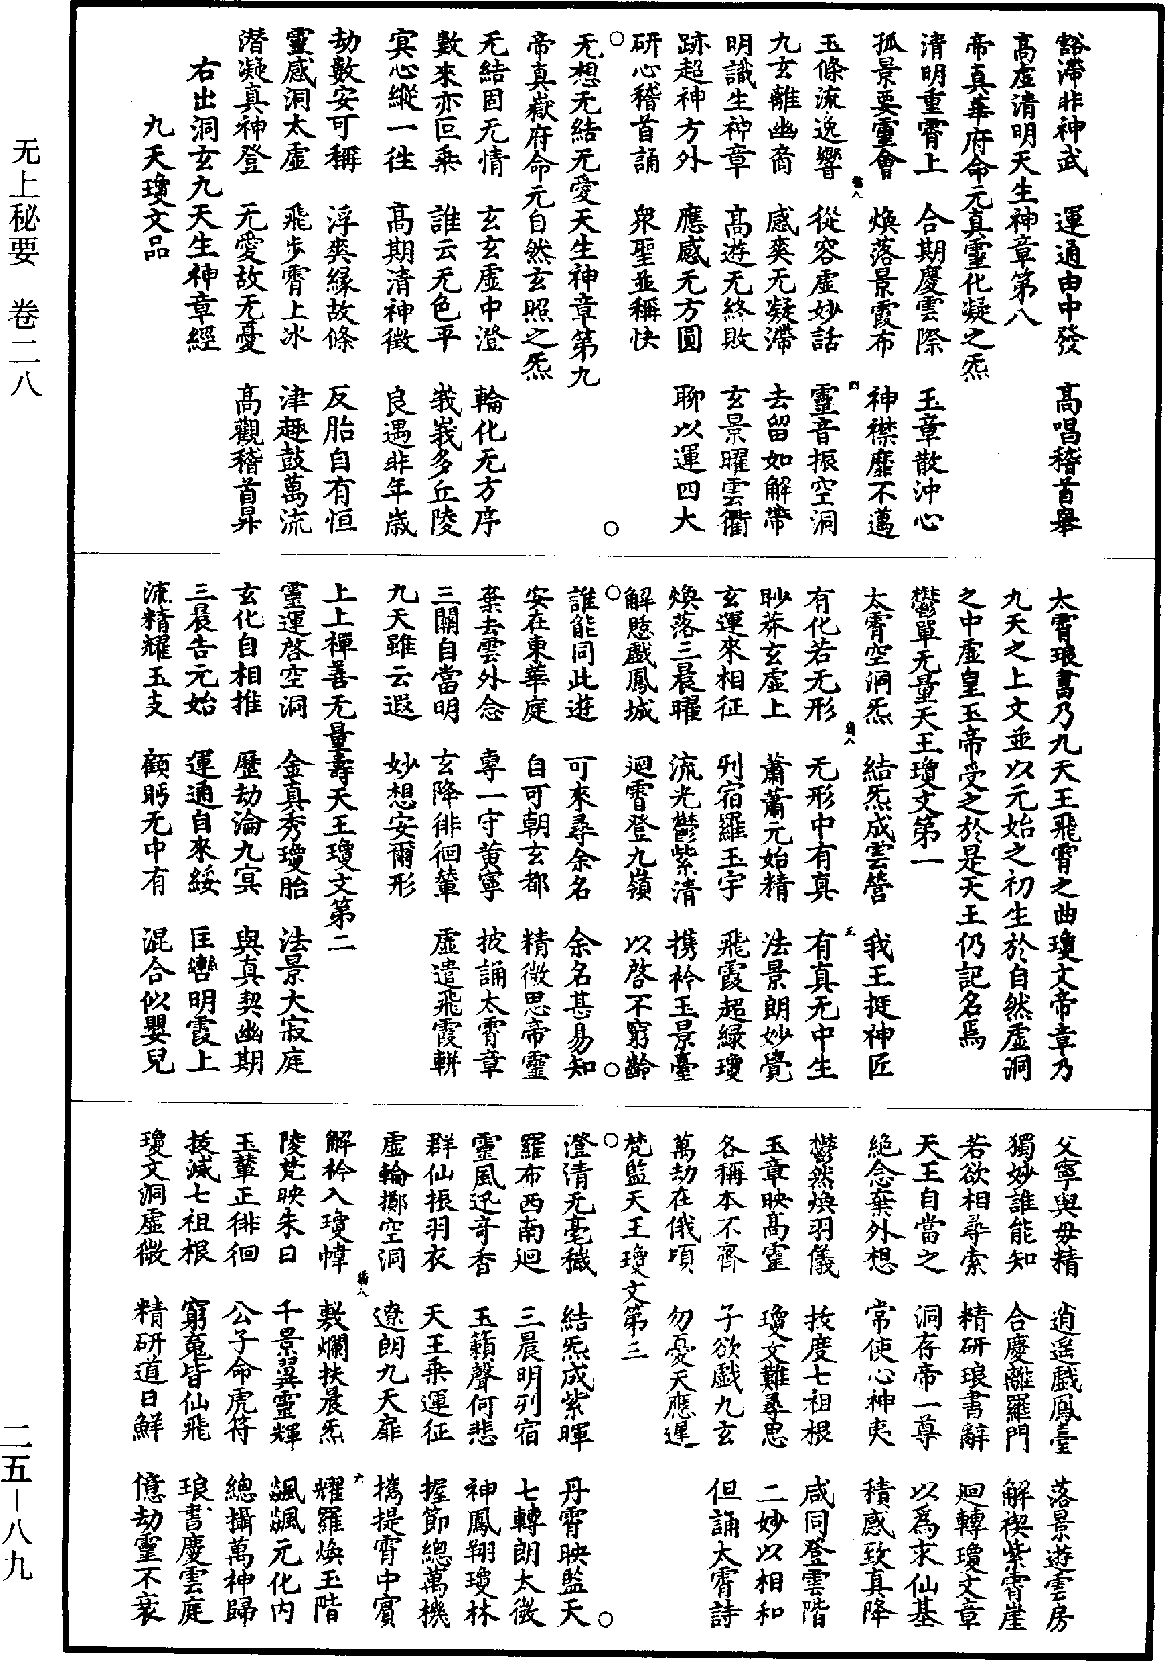 豁滯非神武　運通由中發　高唱稽首舉
高虛清明天生神章第八
帝真華府命元真靈化凝之炁
清明重霄上　合期慶雲際　玉章散沖心
孤景要靈會　煥落景霞布　神襟靡不邁
玉條流逸響　從容虛妙話　靈音振空洞
九玄離幽裔　感爽无凝滯　去留如解帶
明識生神章　高遊无終敗　玄景曜雲衢
跡超神方外　應感无方圓　聊以運四大
研心稽首誦　眾聖並稱快
无想无結无愛天生神章第九
帝真嶽府命元自然玄照之炁
无結固无情　玄玄虛中澄　輪化无方序
數來亦叵乘　誰云无色平　峩峩多丘陵
冥心縱一往　高期清神徵　良遇非年歲
劫數安可稱　浮爽緣故條　反胎自有恒
靈感洞太虛　飛步霄上冰　津趣鼓萬流
潛凝真神登　无愛故无憂　高觀稽首昇
右出洞玄九天生神章經
九天瓊文品
太霄琅書乃九天王飛霄之曲瓊文帝章乃
九天之上文並以元始之初生於自然虛洞
之中虛皇玉帝受之於是天王仍記名焉
鬱單无量天王瓊文第一
太霄空洞炁　結炁成雲營　我王挺神匠
有化若无形　无形中有真　有真无中生
眇莽玄虛上　蕭蕭元始精　法景朗妙覺
玄運來相征　列宿羅玉宇　飛霞超綠瓊
煥落三晨曜　流光鬱紫清　携衿玉景臺
解憇戲鳳城　迴霄登九嶺　以啓不窮齡
誰能同此遊　可來尋余名　余名甚易知
安在東華庭　自可朝玄都　精微思帝靈
棄去雲外念　專一守黃寧　披誦太霄章
三關自當明　玄降徘徊輦　虛遣飛霞軿
九天雖云遐　妙想安爾形
上上禪善无量壽天王瓊文第二
靈運啓空洞　金真秀瓊胎　法景大寂庭
玄化自相推　歷劫淪九冥　與真契幽期
三晨告元始　運通自來綏　匡轡明霞上
流精耀玉支　顧眄无中有　混合似嬰兒
父寧與毋精　逍遥戲鳳臺　落景遊雲房
獨妙誰能知　合慶離羅門　解禊紫霄崖
若欲相尋索　精研琅書辭　迴轉瓊文章
天王自當之　洞存帝一尊　以為求仙基
絕念棄外想　常使心神夷　積感致真降
鬱然煥羽儀　拔度七祖根　咸同登雲階
玉章映高靈　瓊文難尋思　二妙以相和
各稱本不齊　子欲戲九玄　但誦太霄詩
萬劫在俄頃　勿憂天應遲
梵監天王瓊文第三
澄清无毫穢　結炁成紫暉　丹霄映監天
羅布西南迴　三晨明列宿　七轉朗太微
靈風迅奇香　玉籟聲何悲　神鳳翔瓊林
群仙振羽衣　天王乘運征　握節總萬機
虛輪擲空洞　遼朗九天扉　携提霄中賓
解衿入瓊幃　敷爛扶晨炁　耀羅煥玉階
陵梵映朱日　千景翼靈輝　飆飆元化內
玉輦正徘徊　公子命虎符　總攝萬神歸
拔滅七祖根　窮魂皆仙飛　琅書慶雲庭
瓊文洞虛微　精研道日鮮　億劫靈不衰
无上秘要　卷二八
二五－八九